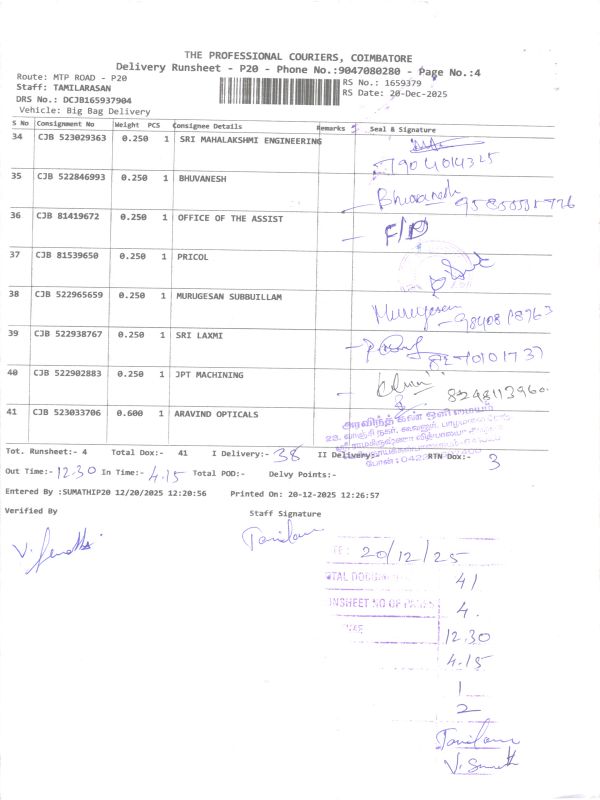 THE PROFESSIONAL COURIERS, COIMBATORE
Delivery Runsheet - P20 - Phone No.:9047080280 - Page No.:4
Route: MTP ROAD - P20
RS No.: 1659379
Staff: TAMILARASAN
RS Date: 20-Dec-2025
DRS No.: DCJB165937904
Vehicle: Big Bag Delivery
S No Consignment No Weight PCS Consignee Details Remarks Seal & Signature
34 CJB 523029363 0.250 1 SRI MAHALAKSHMI ENGINEERING
7904014325
35 CJB 522846993 0.250 1 BHUVANESH
Bhuvanesh
36 CJB 81419672 0.250 1 OFFICE OF THE ASSIST F/D
37 CJB 81539650 0.250 1 PRICOL
38 CJB 522965659 0.250 1 MURUGESAN SUBBUILLAM
Murugesan
39 CJB 522938767 0.250 1 SRI LAXMI
8270101737
40 CJB 522902883 0.250 1 JPT MACHINING
8248113960
41 CJB 523033706 0.600 1 ARAVIND OPTICALS
அரவிந்த் கண் ஒளி மையம்
Tot. Runsheet:- 4 Total Dox:- 41 I Delivery:- 38 II Delivery:- RTN Dox:- 3
Out Time:- 12.30 In Time:- 4.15 Total POD:- Delvy Points:-
Entered By :SUMATHIP20 12/20/2025 12:20:56 Printed On: 20-12-2025 12:26:57
Verified By Staff Signature
20/12/25
41
4.
12.30
4.15
1
2